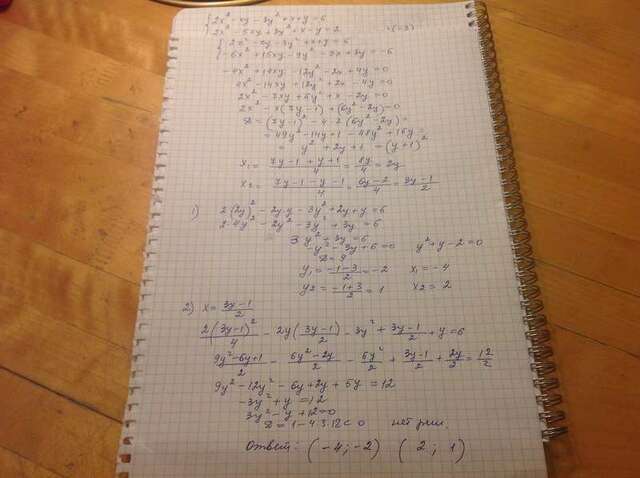 {2x² - xy - 3y² + x + y = 6
2x² - 5xy + 3y² + x - y = 2 |·(-3)
{2x² - xy - 3y² + x + y = 6
-6x² + 15xy - 9y² - 3x + 3y = -6
-4x² + 14xy - 12y² - 2x + 4y = 0
4x² - 14xy + 12y² + 2x - 4y = 0
2x² - 7xy + 6y² + x - 2y = 0
2x² - x(7y - 1) + (6y² - 2y) = 0
D = (7y - 1)² - 4·2(6y² - 2y) =
= 49y² - 14y + 1 - 48y² + 16y =
= y² + 2y + 1 = (y + 1)²
x₁ = (7y - 1 + y + 1)/4 = 8y/4 = 2y
x₂ = (7y - 1 - y - 1)/4 = (6y - 2)/4 = (3y - 1)/2
1) 2(2y)² - 2y·y - 3y² + 2y + y = 6
2·4y² - 2y² - 3y² + 3y = 6
3y² + 3y = 6
-y² - 3y + 6 = 0 y² + y - 2 = 0
D = 9
y₁ = (-1 - 3)/2 = -2 x₁ = -4
y₂ = (-1 + 3)/2 = 1 x₂ = 2
2) x = (3y - 1)/2
2(3y - 1)²/4 - 2y(3y - 1)/2 - 3y² + (3y - 1)/2 + y = 6
(9y² - 6y + 1)/2 - (6y² - 2y)/2 - 6y²/2 + (3y - 1)/2 + 2y/2 = 12/2
9y² - 12y² - 6y + 2y + 5y = 12
-3y² + y = 12
3y² - y + 12 = 0
D = 1 - 4·3·12 < 0 нет реш.
Ответ: (-4; -2) (2; 1)